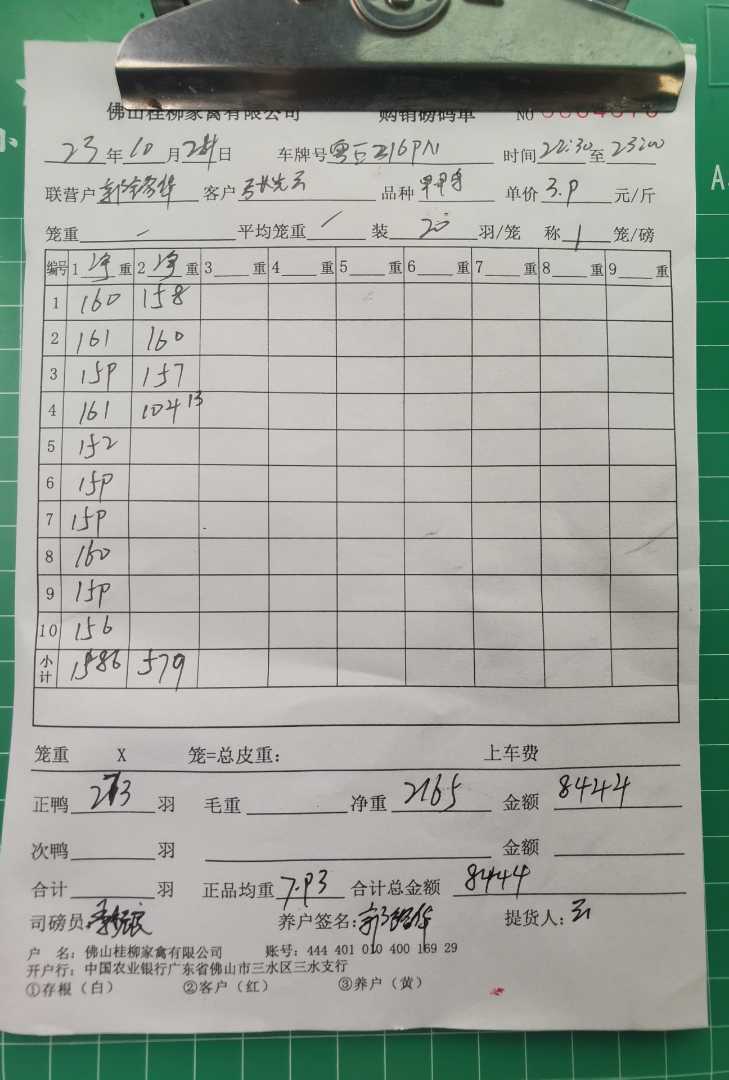 佛山桂柳家禽有限公司 购销磅码单 NO
23年10月24日 车牌号 时间22:30至23:00
联营户 客户 品种 单价3.9元/斤
笼重 - 平均笼重 / 装20羽/笼 称1笼/磅
编号 1净重 2净重 3重 4重 5重 6重 7重 8重 9重
1 160 158
2 161 160
3 159 157
4 161 104 13
5 152
6 159
7 159
8 160
9 159
10 156
小计 1586 579
笼重 X 笼=总皮重: 上车费
正鸭273羽 毛重 净重2165 金额8444
次鸭 羽 金额
合计 羽 正品均重7.93 合计总金额8444
司磅员: 养户签名: 提货人:云
户 名: 佛山桂柳家禽有限公司 账号: 444 401 010 400 169 29
开户行: 中国农业银行广东省佛山市三水区三水支行
①存根(白) ②客户(红) ③养户(黄)